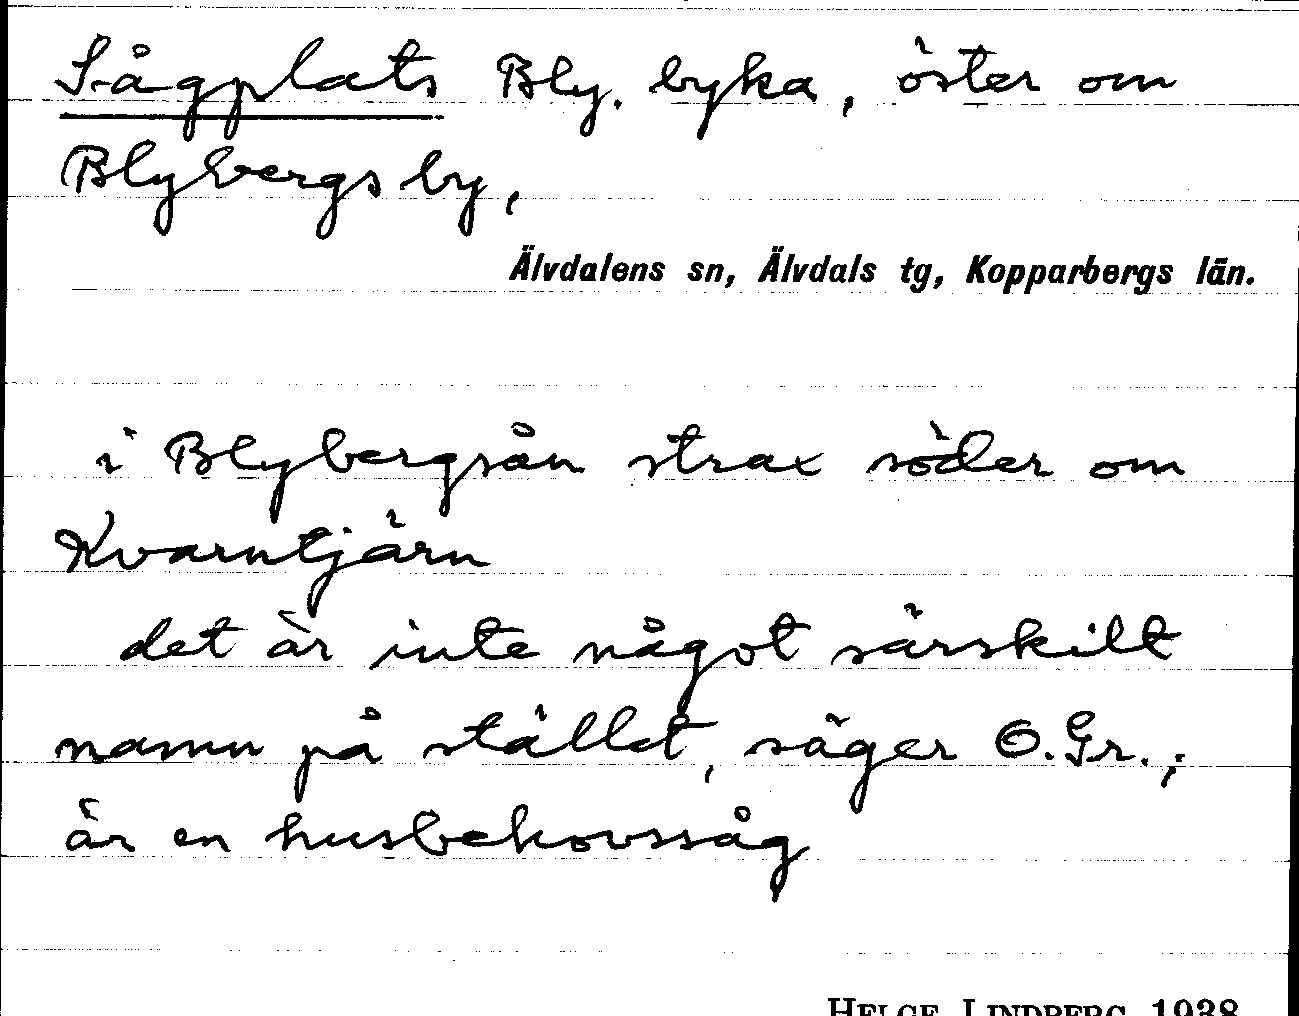 Sågplats Bly. byka, öster om
Blybergs by,
Älvdalens sn, Älvdals tg, Kopparbergs län.
i Blybergsån strax söder om
Kvarntjärn
det är inte något särskilt
namn på stället, säger O. Gr.,;
är en husbehovssåg
HELGE LINDBERG 1938